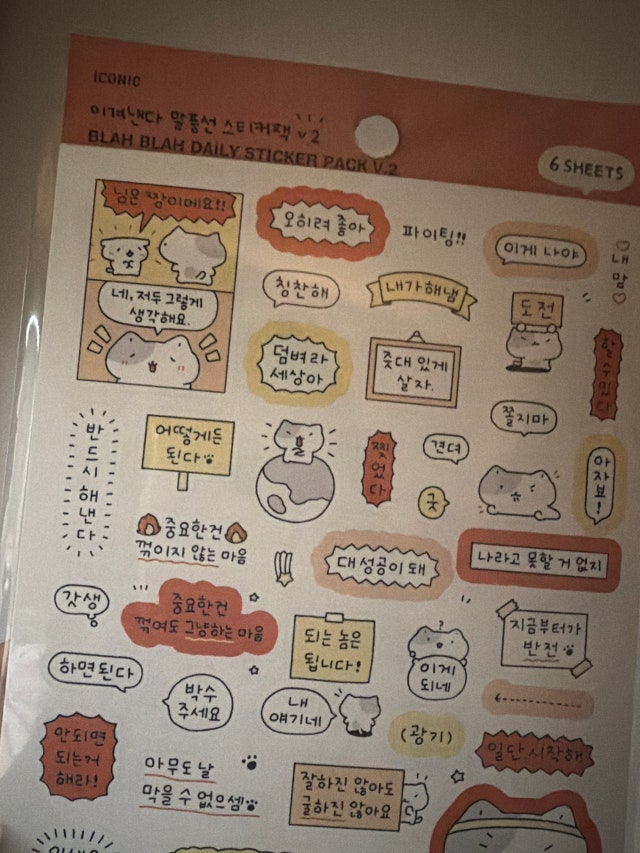 ICONIC
이겨낸다 말풍선 스티커팩 v.2
BLAH BLAH DAILY STICKER PACK V.2
6 SHEETS
님은 짱이에요!!
네, 저두 그렇게
생각해요.
오히려 좋아
파이팅!!
이게 나야
내 맘
칭찬해
내가해냄
도전
할 수 있다
덤벼라
세상아
줏대 있게
살자.
쫄지마
반드시 해낸다
어떻게든
된다
찢었다
견뎌
굿
아자뵤!
중요한건
꺾이지 않는 마음
대성공이 돼
나라고 못할 거 없지
갓생
중요한건
꺾여도 그냥하는 마음
되는 놈은
됩니다!
?
이게
되네
지금부터가
반전
하면된다
박수
주세요
내
얘기네
(광기)
일단 시작해
안되면
되는거
해라!
아무도 날
막을 수 없으셈
잘하진 않아도
굴하진 않아요